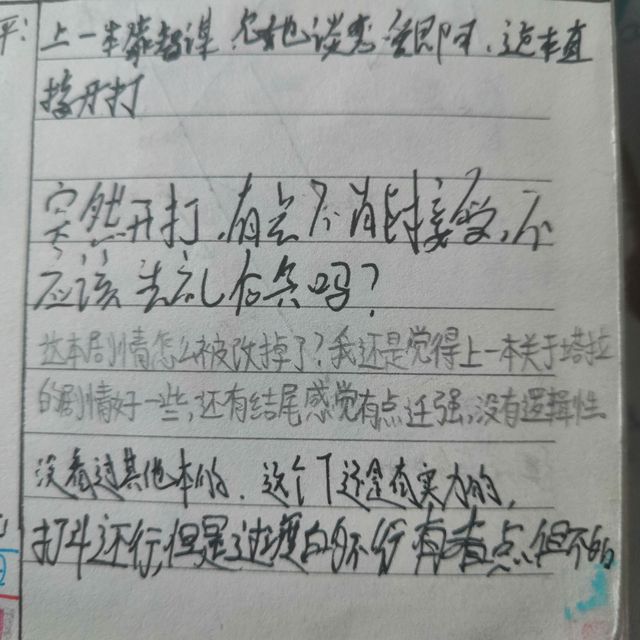 评: 上一本靠智谋, 尤其谈话 即可, 这本直
接开打
突然开打,有点不能接受,不
应该先礼后兵吗?
这本剧情怎么被改掉了?我还是觉得上一本关于塔拉
的剧情好一些,还有结尾感觉有点迁强,没有逻辑性
没看过其他本的, 这个 还是有实力的,
打斗还行但是过渡 不行 有 点 但不